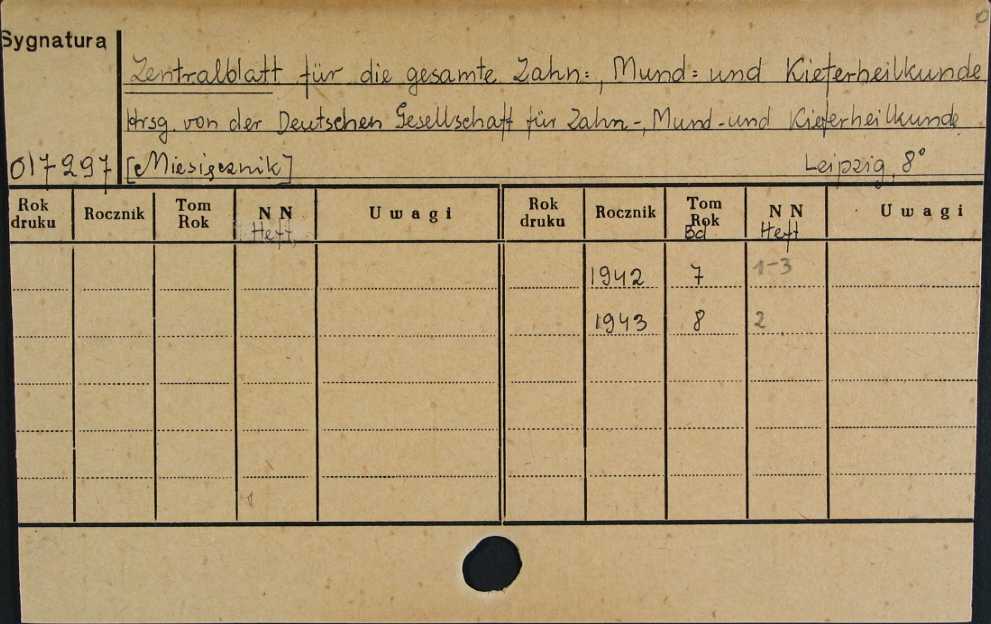 Sygnatura
Zentralblatt für die gesamte Zahn=, Mund= und Kieferheilkunde
Hrsg. von der Deutschen Gesellschaft für Zahn-, Mund- und Kieferheilkunde
017297 [Miesięcznik] Leipzig, 8°
Rok druku Rocznik Tom Rok NN Heft Uwagi Rok druku Rocznik Tom Rok Bd NN Heft Uwagi
1942 7 1-3
1943 8 2